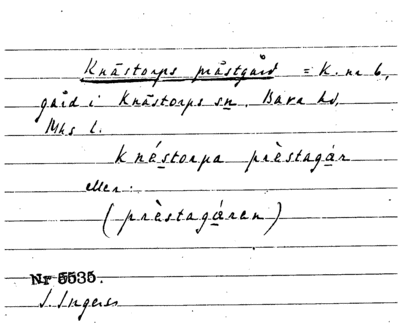 Knästorps prästgård = K. nr 6,
gård i Knästorps sn, Bara hd,
Mhs l.
knéstorpa prèstagár
eller
(prèstagáren)
Nr 5535.
I. Ingers